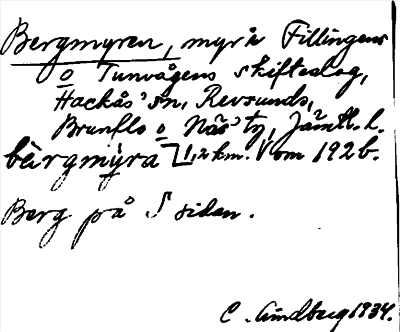 Bergmyren, myr å Fillingens
o Tunvågens skifteslag,
Hackås' sn, Revsunds,
Brunflo o Näs' tg, Jämtl. l.
bärgmýra 1,2 km. V om 192b.
Berg på S sidan.
C. Lindberg 1934.